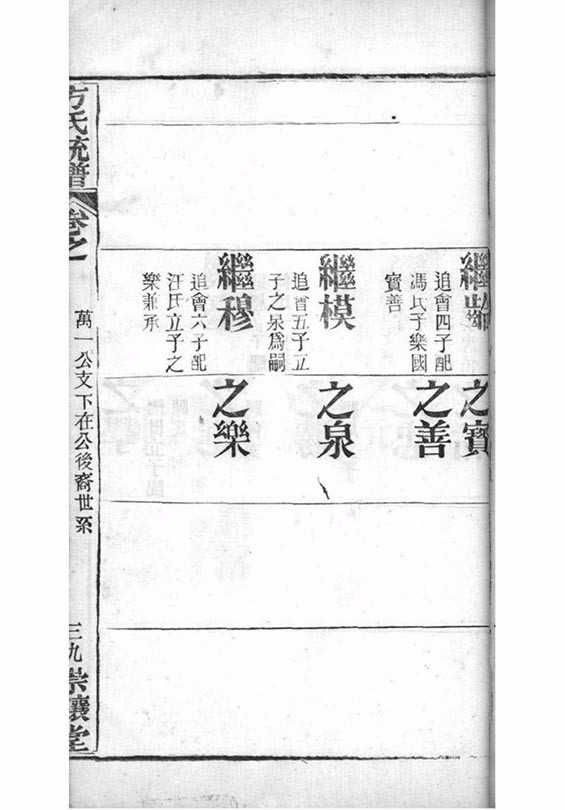 繼齡
追會四子配
馮氏子樂國
寳善
之寳
之善
繼模
追會五子立
子之泉爲嗣
之泉
繼穆
追會六子配
汪氏立子之
樂兼承
之樂
方氏統譜
卷之
萬一公支下在公後裔世系
三九
崇讓堂